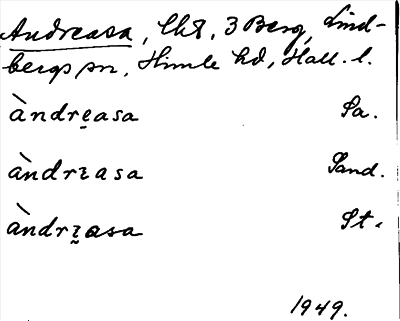 Andreasa, lht, 3 Berg, Lind-
bergs sn, Himle hd, Hall. l.
àndrẹasa Sa.
àndrɪasa Sand.
àndrɪ̰asa St.
1949.